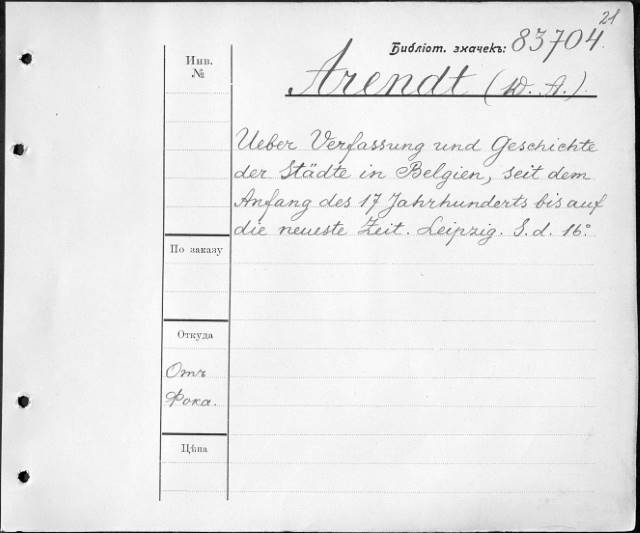 21
Библіот. значекъ: 83704.
Инв.
№
Arendt (W. A.).
Ueber Verfassung und Geschichte
der Städte in Belgien, seit dem
Anfang des 17 Jahrhunderts bis auf
die neueste Zeit. Leipzig. S. d. 16°
По заказу
Откуда
Отъ
Фока.
Цѣна